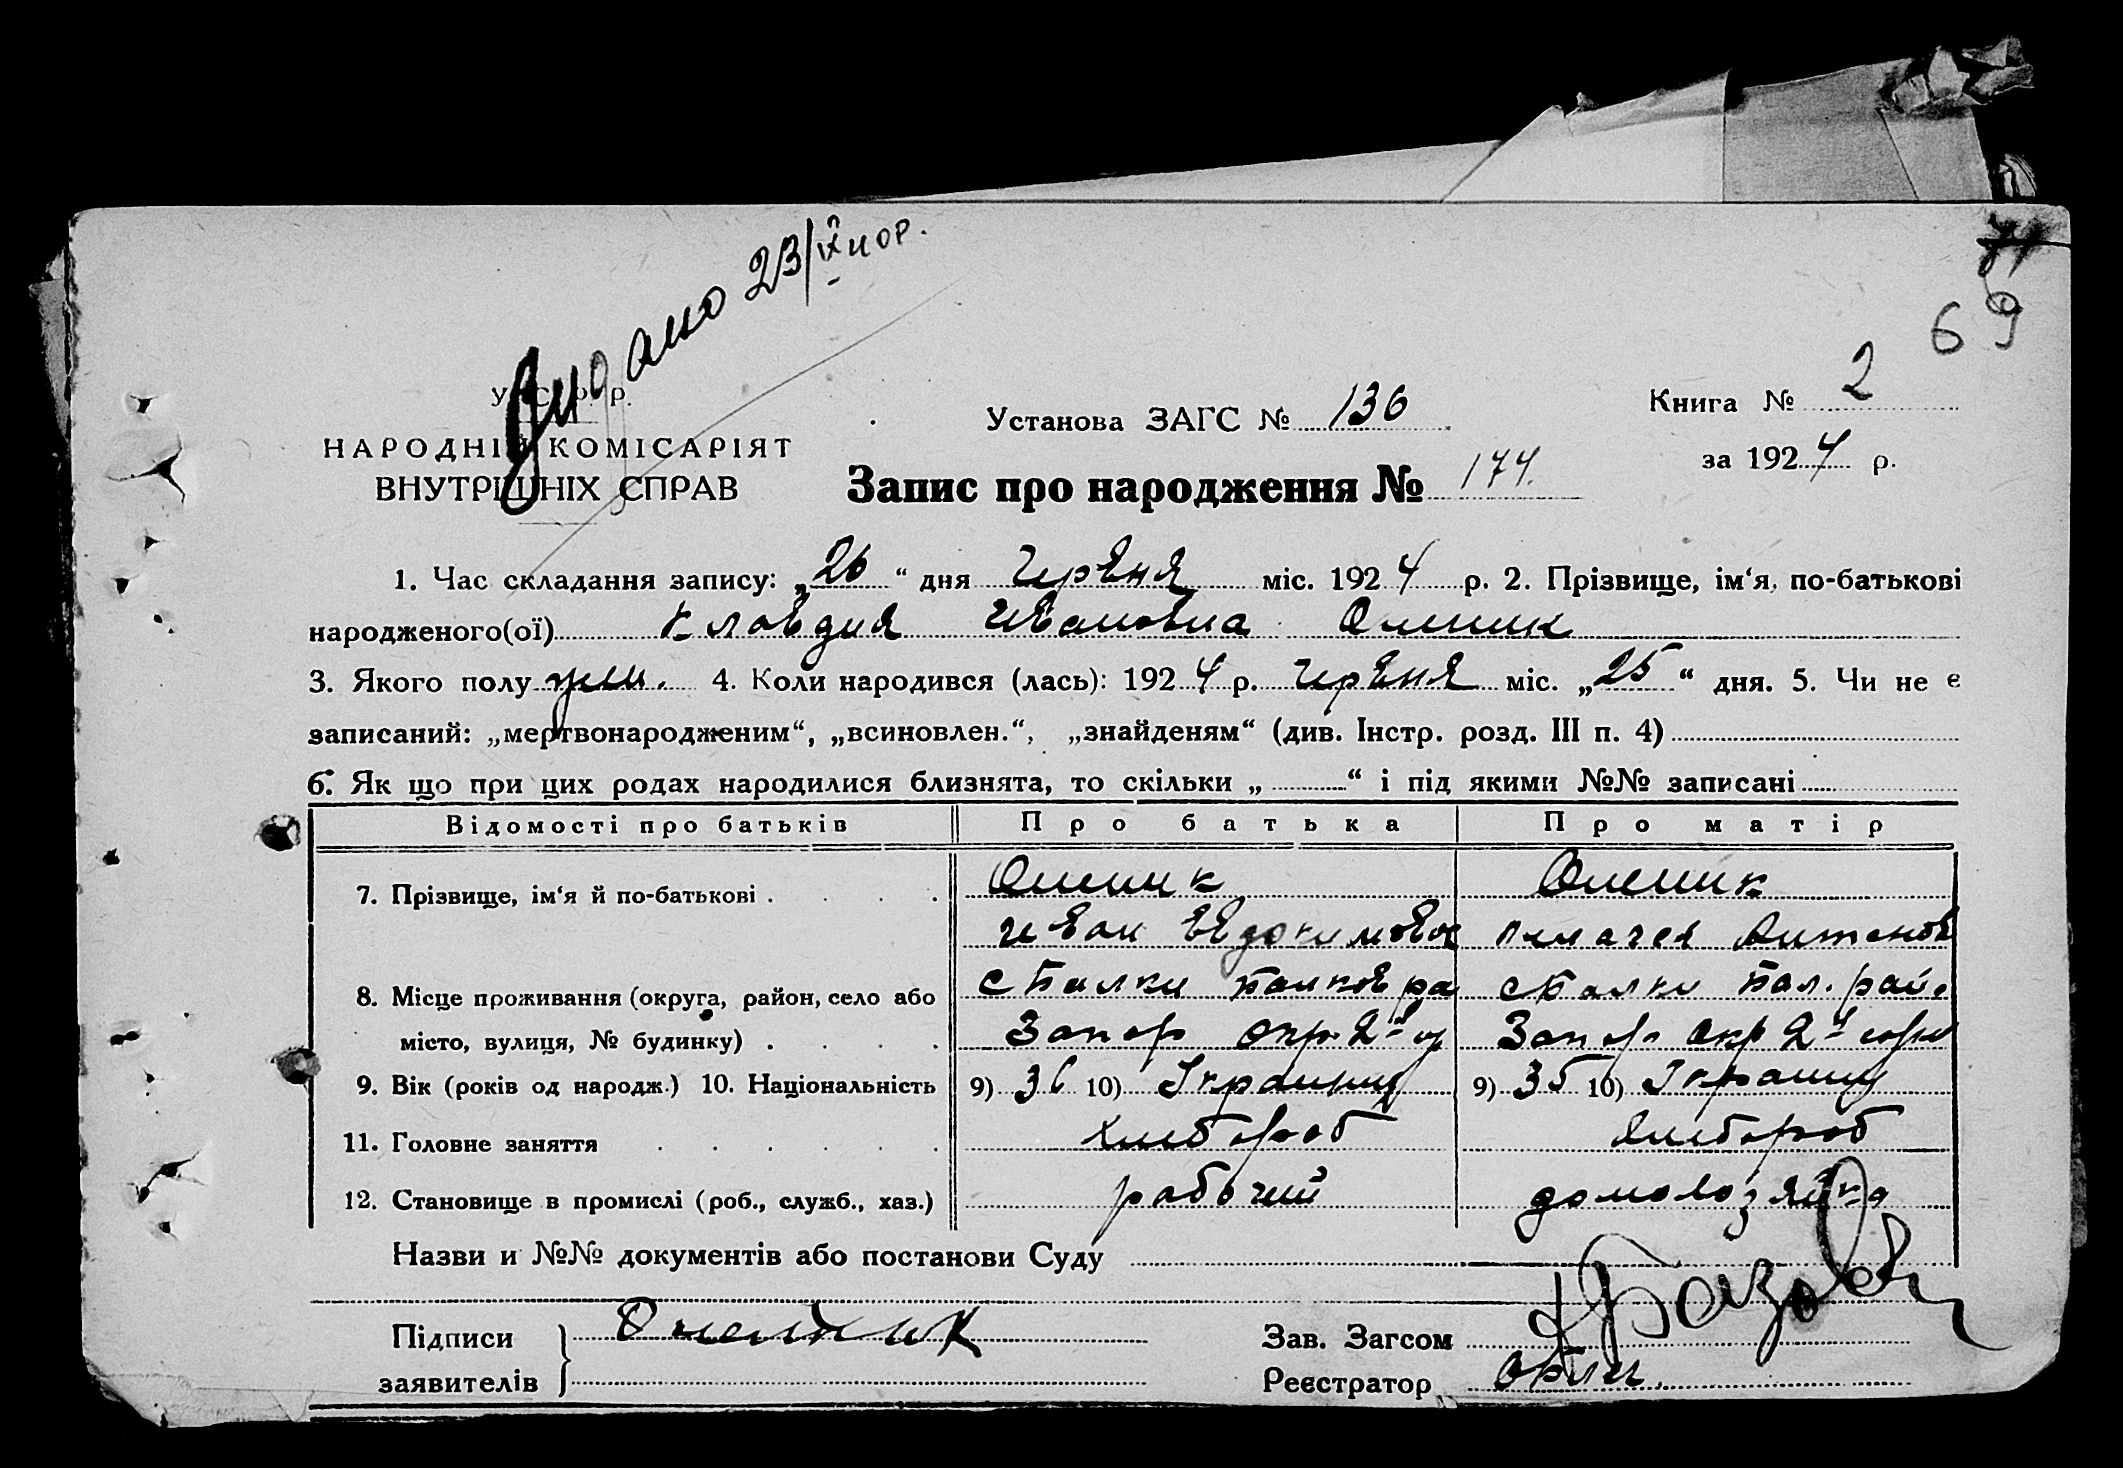 Видано 23/IX
69
У. С. Р. Р.
НАРОДНІЙ КОМІСАРІЯТ
ВНУТРІШНІХ СПРАВ
Установа ЗАГС № 136
Книга № 2
за 1924 р.
Запис про народження № 174.
1. Час складання запису: „26“ дня червня міс. 1924 р. 2. Прізвище, ім‘я, по-батькові
народженого(ої) Клавдия Ивановна Олиник
3. Якого полу жін. 4. Коли народився (лась): 1924 р. червня міс. „25“ дня. 5. Чи не є
записаний: „мертвонародженим“, „всиновлен.“, „знайденям“ (див. Інстр. розд. III п. 4)
6. Як що при цих родах народилися близнята, то скільки „ “ і під якими №№ записані
Відомості про батьків Про батька Про матір
7. Прізвище, ім‘я й по-батькові Олешик Олешик
Иван Евдокимов Антонов
8. Місце проживання (округа, район, село або с Балки с Балки Бал. рай.
місто, вулиця, № будинку) Запор окр. Запор окр
9. Вік (років од народж.) 10. Національність 9) 36 10) Украинец 9) 35 10)
11. Головне заняття хлебороб хлебороб
12. Становище в промислі (роб., служб., хаз.) рабочий домохозяйка
Назви и №№ документів або постанови Суду
Підписи
заявителів
Зав. Загсом
Реєстратор